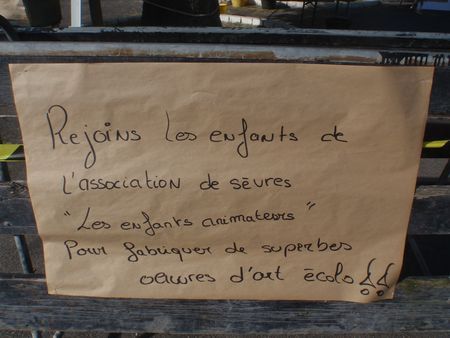 Rejoins les enfants de
l'association de sèvres
"Les enfants animateurs"
Pour fabriquer de superbes
oeuvres d'art écolo !!